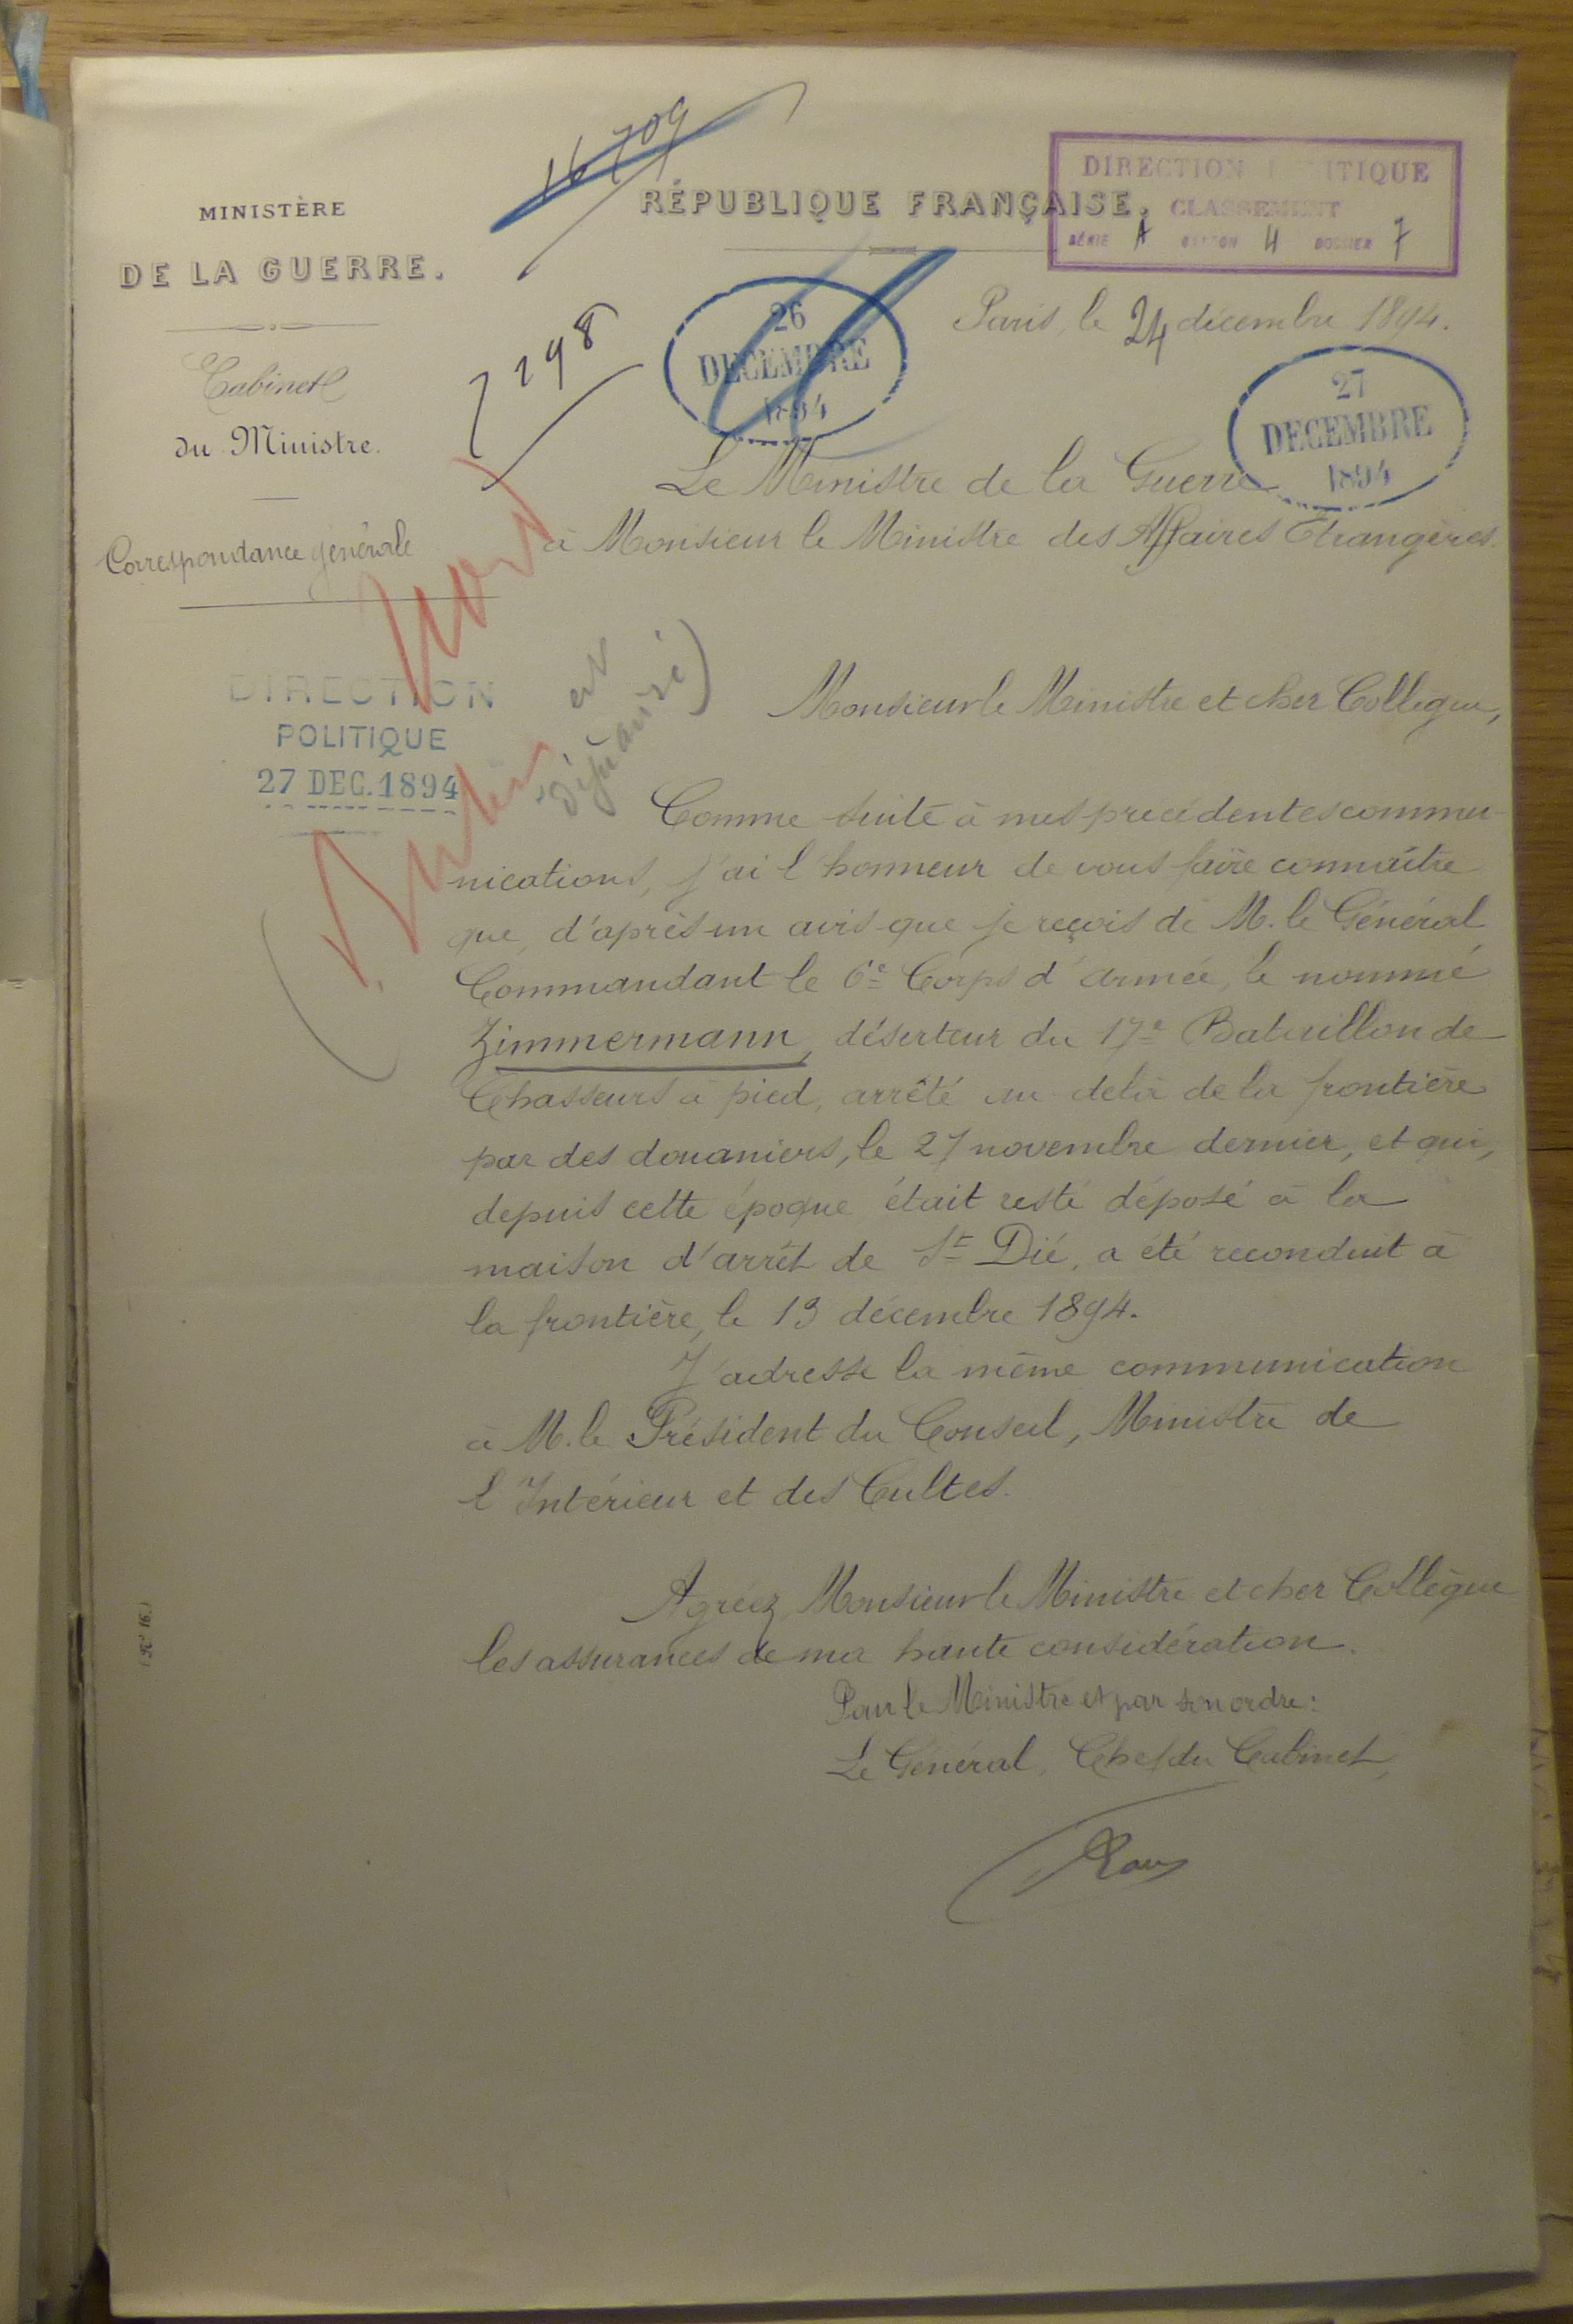 16709
MINISTÈRE
DE LA GUERRE.
Cabinet
du Ministre.
Correspondance générale
RÉPUBLIQUE FRANÇAISE.
DIRECTION ITIQUE
CLASSEMENT
SÉRIE A CARTON 4 DOSSIER 7
Paris, le 24 décembre 1894.
26
DECEMBRE
1894
27
DECEMBRE
1894
Le Ministre de la Guerre
à Monsieur le Ministre des Affaires Etrangères.
DIRECTION
POLITIQUE
27 DEC. 1894
Nord
Monsieur le Ministre et cher Collègue,
Comme suite à mes précédentes commu-
nications, j'ai l'honneur de vous faire connaître
que, d'après un avis que je reçois de M. le Général
Commandant le 6e Corps d'armée, le nommé
Zimmermann, déserteur du 17e Bataillon de
Chasseurs à pied, arrêté au delà de la frontière
par des douaniers, le 27 novembre dernier, et qui,
depuis cette époque était resté déposé à la
maison d'arrêt de St Dié, a été reconduit à
la frontière, le 13 décembre 1894.
J'adresse la même communication
à M. le Président du Conseil, Ministre de
l'Intérieur et des Cultes.
Agréez, Monsieur le Ministre et cher Collègue
les assurances de ma haute considération.
Pour le Ministre et par son ordre:
Le Général, Chef du Cabinet,